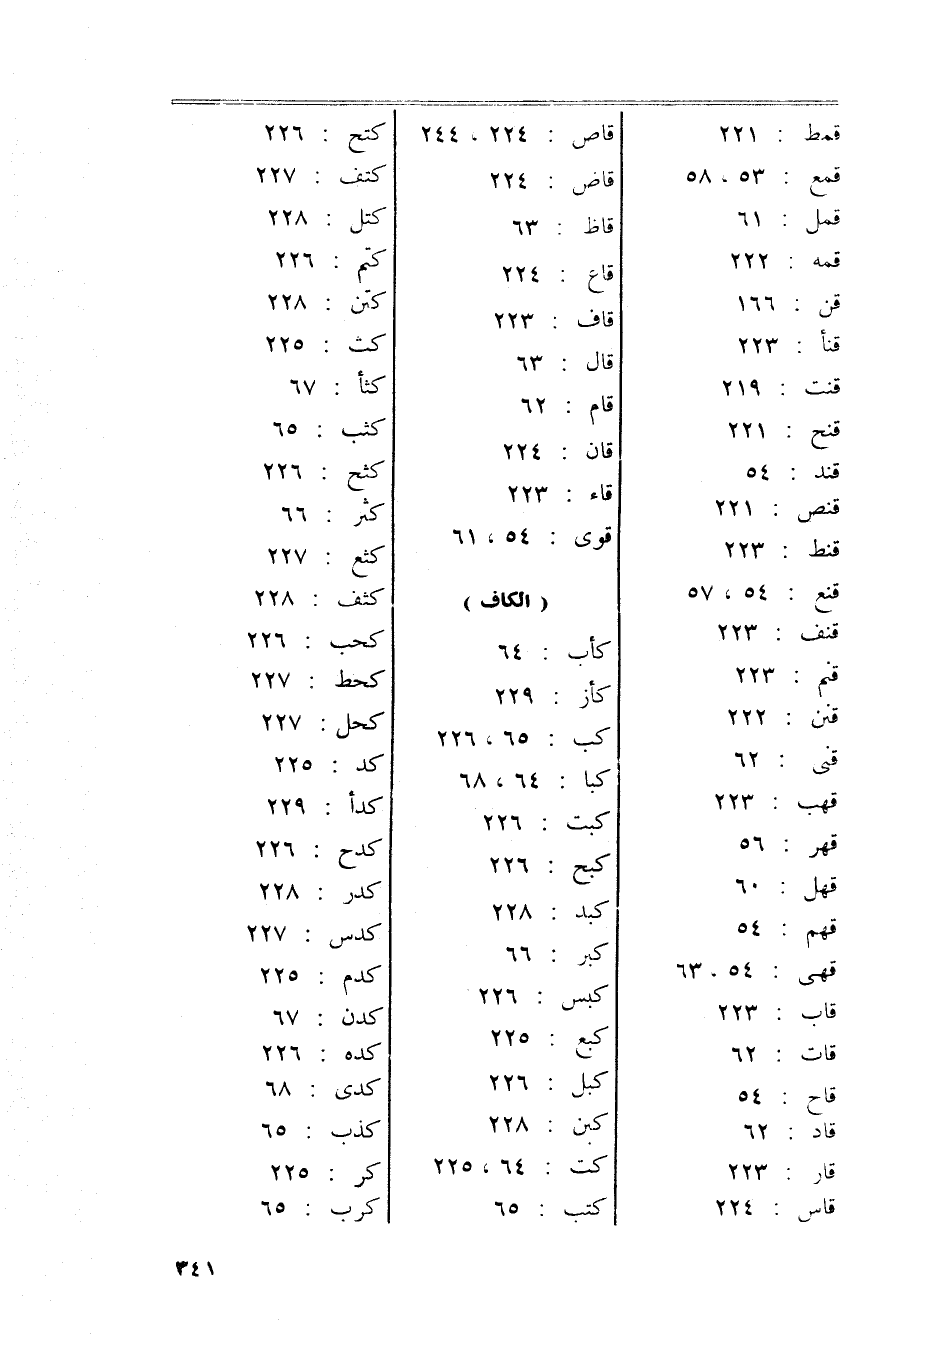 قمط : ٢٢١
قمع : ٥٣ ، ٥٨
قمل : ٦١
قمه : ٢٢٢
قن : ١٦٦
قنأ : ٢٢٣
قنت : ٢١٩
قنح : ٢٢١
قند : ٥٤
قنص : ٢٢١
قنط : ٢٢٣
قنع : ٥٤ ، ٥٧
قنف : ٢٢٣
قنم : ٢٢٣
قنن : ٢٢٢
قنى : ٦٢
قهب : ٢٢٣
قهر : ٥٦
قهل : ٦٠
قهم : ٥٤
قهى : ٥٤ ، ٦٣
قاب : ٢٢٣
قات : ٦٢
قاح : ٥٤
قاد : ٦٢
قار : ٢٢٣
قاس : ٢٢٤
قاص : ٢٢٤ ، ٢٤٤
قاض : ٢٢٤
قاظ : ٦٣
قاع : ٢٢٤
قاف : ٢٢٣
قال : ٦٣
قام : ٦٢
قان : ٢٢٤
قاء : ٢٢٣
قوى : ٥٤ ، ٦١
( الكاف )
كأب : ٦٤
كأز : ٢٢٩
كب : ٦٥ ، ٢٢٦
كبا : ٦٤ ، ٦٨
كبت : ٢٢٦
كبح : ٢٢٦
كبد : ٢٢٨
كبر : ٦٦
كبس : ٢٢٦
كبع : ٢٢٥
كبل : ٢٢٦
كبن : ٢٢٨
كت : ٦٤ ، ٢٢٥
كتب : ٦٥
كتح : ٢٢٦
كتف : ٢٢٧
كتل : ٢٢٨
كتم : ٢٢٦
كتن : ٢٢٨
كث : ٢٢٥
كثأ : ٦٧
كثب : ٦٥
كثح : ٢٢٦
كثر : ٦٦
كثع : ٢٢٧
كثف : ٢٢٨
كحب : ٢٢٦
كحط : ٢٢٧
كحل : ٢٢٧
كد : ٢٢٥
كدأ : ٢٢٩
كدح : ٢٢٦
كدر : ٢٢٨
كدس : ٢٢٧
كدم : ٢٢٥
كدن : ٦٧
كده : ٢٢٦
كدى : ٦٨
كذب : ٦٥
كر : ٢٢٥
كرب : ٦٥
٣٤١